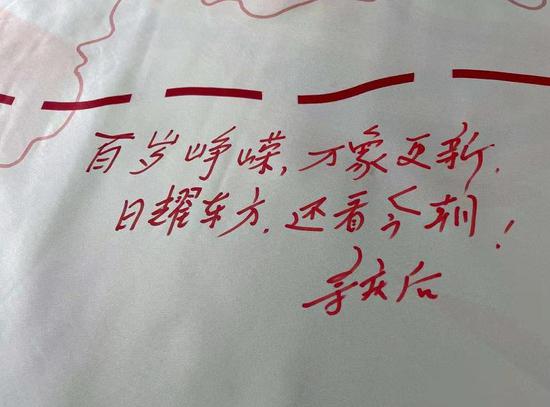 百岁峥嵘，万象更新.
日耀东方.还看今朝！
宗庆后